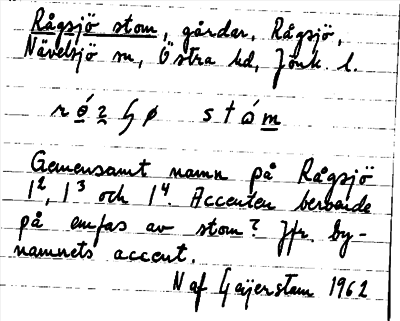 Rågsjö stom, gårdar, Rågsjö,
Nävelsjö sn, Östra hd, Jönk. l.
Gemensamt namn på Rågsjö
1², 1³ och 1⁴. Accenten beroende
på emfas av stom? Jfr by-
namnets accent.
N af Geijerstam 1962